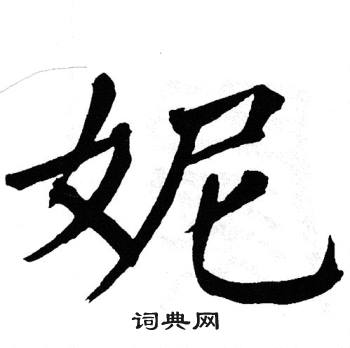 妮
词典网